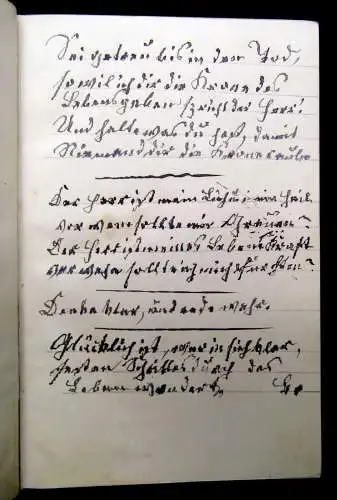 Sei getreu bis in den Tod,
so will ich dir die Krone des
Lebens geben spricht der Herr!
Und halte was du hast, damit
Niemand dir die Krone raube
Der Herr ist mein Licht mein Heil
vor wem sollte mir Grauen?
Der Herr ist meines Lebens Kraft
vor wem sollt ich mich fürchten?
Denke klar, und rede wahr.
Glücklich ist, wer in sich klar,
festen Schrittes durch das
Leben wandert,